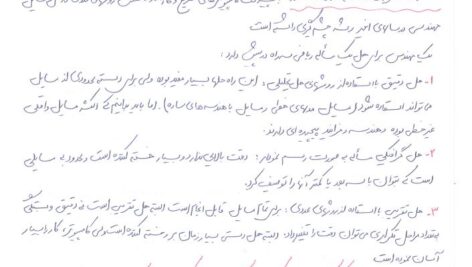 مهندسی در سالهای اخیر رشد چشم گیری داشته است
یک مهندس برای حل یک مسأله ریاضی سه راه در پیش دارد:
۱- حل دقیق با استفاده از روشهای حل تحلیلی: این راه حلها بسیار مفید بوده ولی برای دسته محدودی از مسایل
می تواند استفاده شود (مسایل مدلهای خطی و مسایل با هندسه های ساده). اما باید بدانیم که اکثر مسایل واقعی
غیر خطی بوده و هندسه و فرآیند پیچیده ای دارند.
۲- حل گرافیکی مسأله به صورت رسم نمودار: دقت بالایی ندارد و بسیار خسته کننده است و محدود به مسایلی
است که بتوان با سه بعد یا کمتر آنها را توصیف کرد.
۳- حل تقریبی با استفاده از روشهای عددی: برای تمام مسایل قابل انجام است البته حل تقریبی است نه دقیق و بستگی
به تعداد مراحل تکراری می توان دقت را تغییر داد. البته حل دستی بسیار زمان بر و خسته کننده است ولی کامپیوتر، کار را بسیار
آسان نموده است